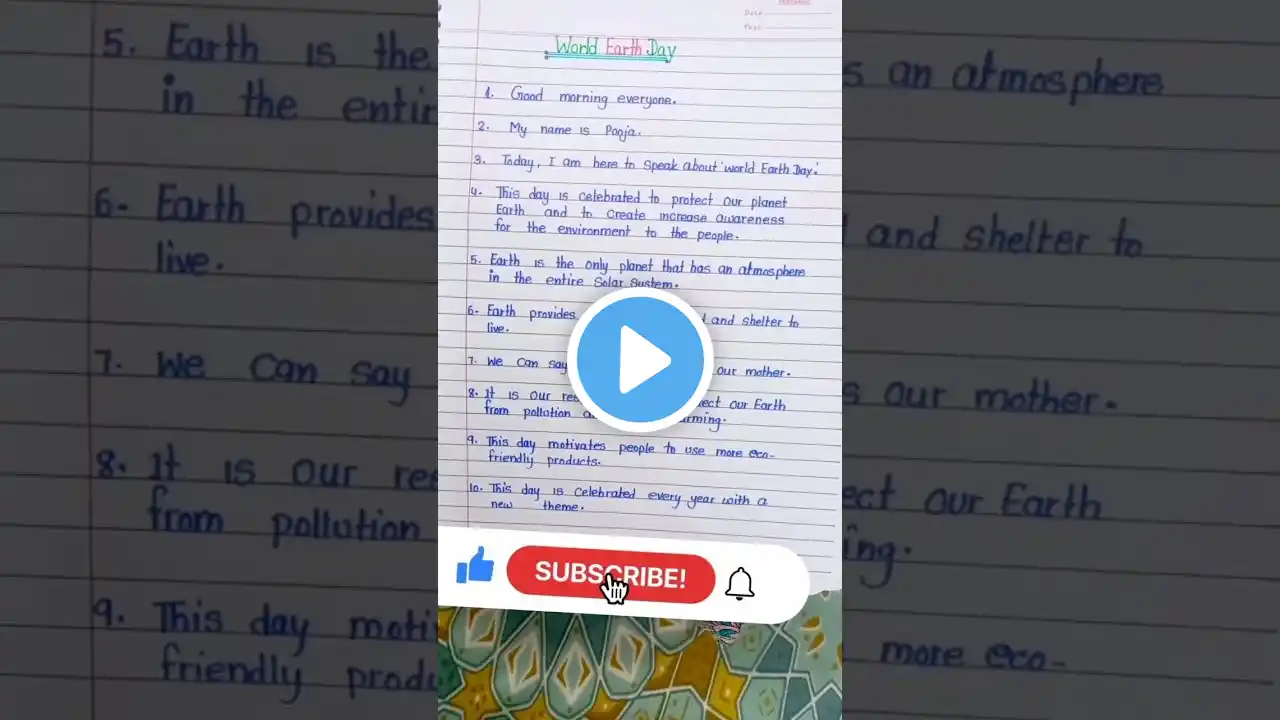 Date
Page
World Earth Day
1. Good morning everyone.
2. My name is Pooja.
3. Today, I am here to speak about 'world Earth Day.'
4. This day is celebrated to protect our planet
Earth and to create increase awareness
for the environment to the people.
5. Earth is the only planet that has an atmosphere
in the entire solar system.
6. Earth provides and shelter to
live.
7. We can say our mother.
8. It is our our Earth
from pollution
9. This day motivates people to use more eco-
friendly products.
10. This day is celebrated every year with a
new theme.
SUBSCRIBE!
5. Earth is the
in the
6. Earth provides
live.
7. We can say
8. It is our
from pollution
9. This day
friendly
an atmosphere
and shelter to
our mother.
our Earth
more eco-